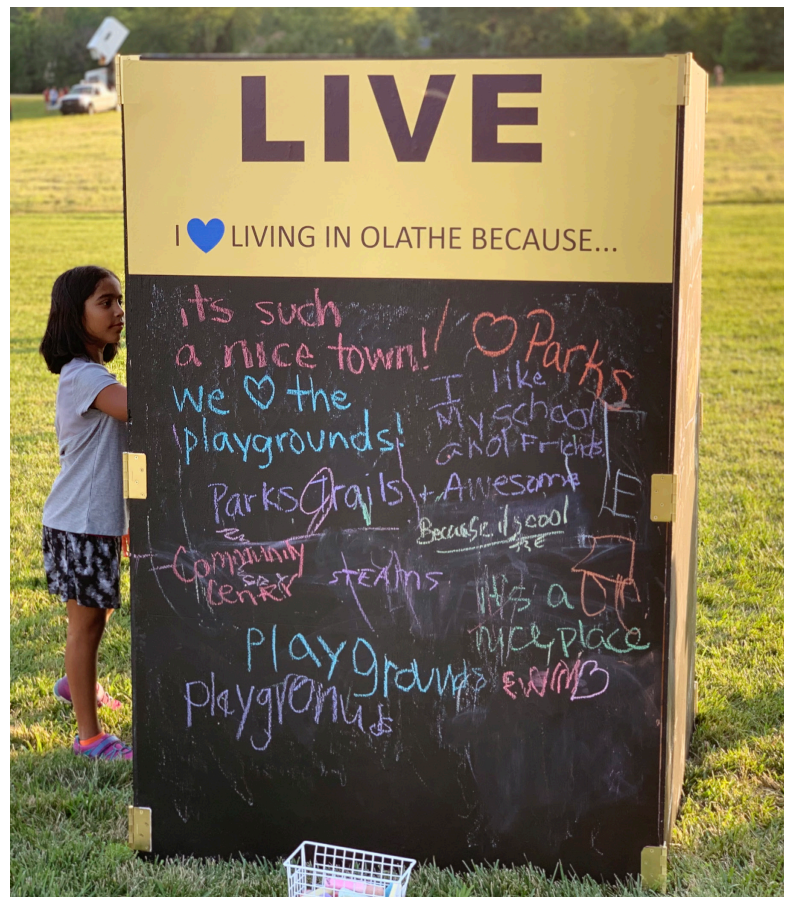 LIVE
I 💙 LIVING IN OLATHE BECAUSE...
it's such
a nice town!
♡ Parks
we ♡ the
playgrounds!
I like
My school
and Friends
Parks Trails + Awesome
Because it's cool
Community
Center
STEAMS
it's a
nice place
playgrounds
playgronus
E